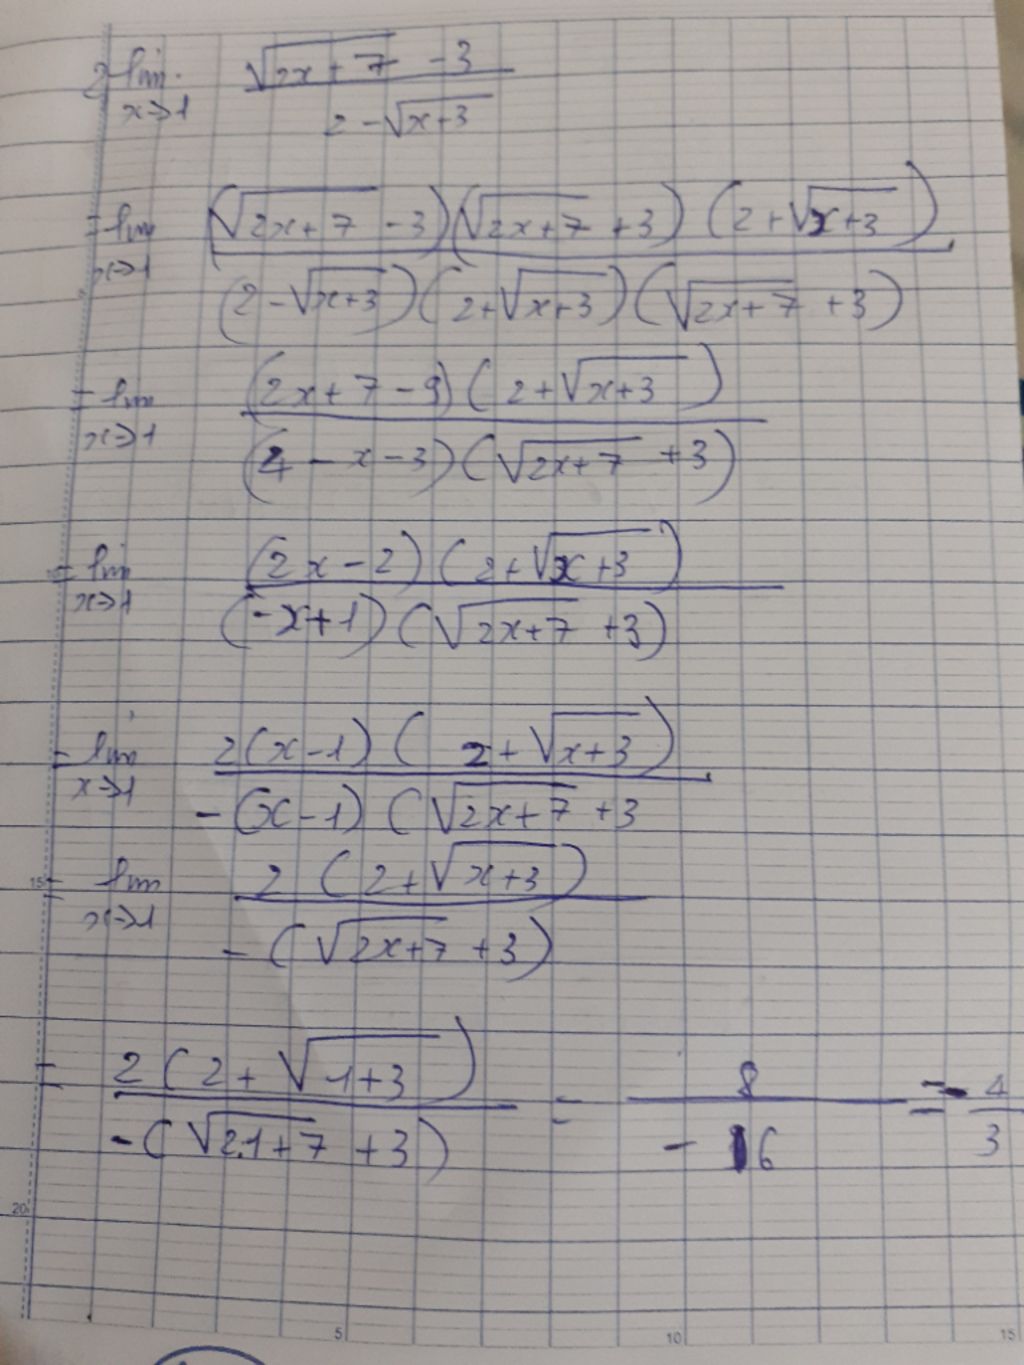 2 lim x→1 (√(2x+7) - 3) / (2 - √(x+3))
= lim x→1 ((√(2x+7) - 3)(√(2x+7) + 3)(2 + √(x+3))) / ((2 - √(x+3))(2 + √(x+3))(√(2x+7) + 3))
= lim x→1 ((2x+7-9)(2 + √(x+3))) / ((4 - x - 3)(√(2x+7) + 3))
= lim x→1 ((2x-2)(2 + √(x+3))) / ((-x+1)(√(2x+7) + 3))
= lim x→1 (2(x-1)(2 + √(x+3))) / (-(x-1)(√(2x+7) + 3
15 = lim x→1 (2(2 + √(x+3))) / (-(√(2x+7) + 3))
= (2(2 + √(1+3))) / (-(√(2.1+7) + 3)) = 8 / -6 = -4/3
20
5 10 15